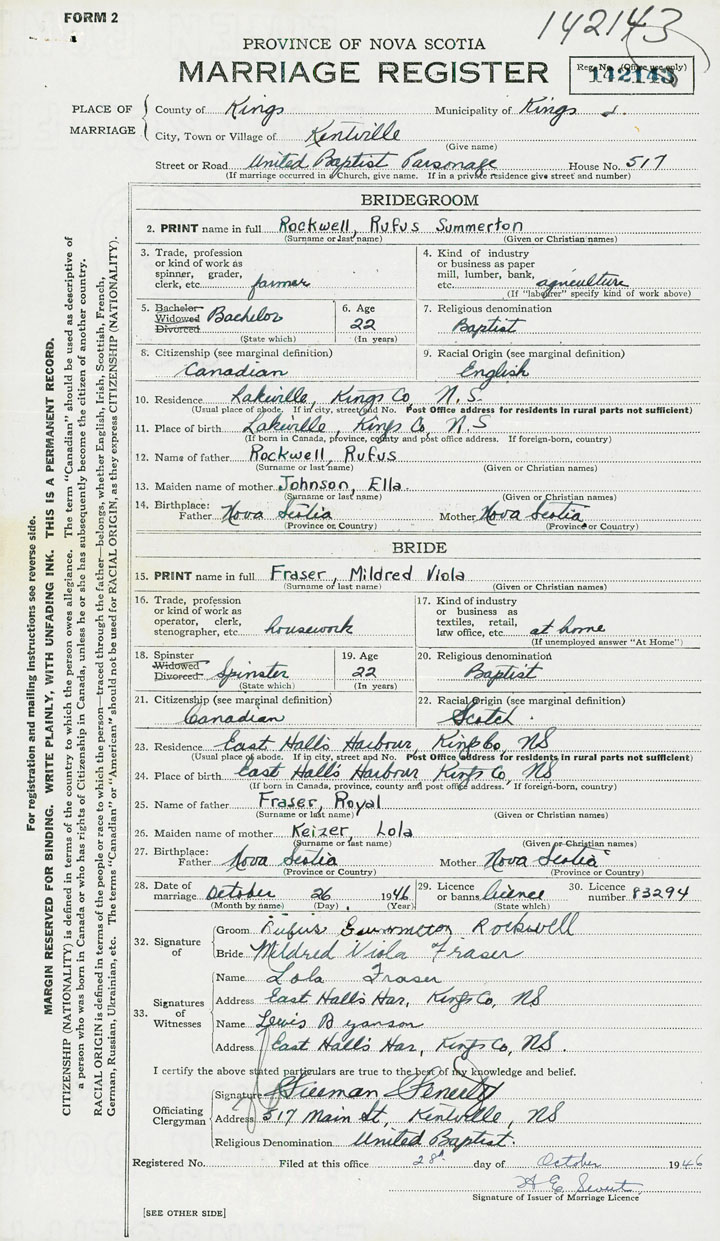 FORM 2
142143
PROVINCE OF NOVA SCOTIA
MARRIAGE REGISTER
Reg. No. (Office use only)
142143
PLACE OF MARRIAGE
County of Kings Municipality of Kings
City, Town or Village of Kentville
(Give name)
Street or Road United Baptist Parsonage House No. 517
(If marriage occurred in a Church, give name. If in a private residence give street and number)
BRIDEGROOM
2. PRINT name in full Rockwell, Rufus Summerton
(Surname or last name) (Given or Christian names)
3. Trade, profession or kind of work as spinner, grader, clerk, etc. farmer
4. Kind of industry or business as paper mill, lumber, bank, etc. agriculture
(If "labourer" specify kind of work above)
5. Bachelor Widowed Divorced Bachelor
(State which)
6. Age 22
(In years)
7. Religious denomination
Baptist
8. Citizenship (see marginal definition)
Canadian
9. Racial Origin (see marginal definition)
English
10. Residence Lakeville, Kings Co, N.S.
(Usual place of abode. If in city, street and No. Post Office address for residents in rural parts not sufficient)
11. Place of birth Lakeville, Kings Co, N.S
(If born in Canada, province, county and post office address. If foreign-born, country)
12. Name of father Rockwell, Rufus
(Surname or last name) (Given or Christian names)
13. Maiden name of mother Johnson, Ella
(Surname or last name) (Given or Christian names)
14. Birthplace: Father Nova Scotia Mother Nova Scotia
(Province or Country) (Province or Country)
BRIDE
15. PRINT name in full Fraser, Mildred Viola
(Surname or last name) (Given or Christian names)
16. Trade, profession or kind of work as operator, clerk, stenographer, etc. housework
17. Kind of industry or business as textiles, retail, law office, etc. at home
(If unemployed answer "At Home")
18. Spinster Widowed Divorced Spinster
(State which)
19. Age 22
(In years)
20. Religious denomination
Baptist
21. Citizenship (see marginal definition)
Canadian
22. Racial Origin (see marginal definition)
Scotch.
23. Residence East Hall's Harbour, Kings Co, NS
(Usual place of abode. If in city, street and No. Post Office address for residents in rural parts not sufficient)
24. Place of birth East Hall's Harbour Kings Co, NS
(If born in Canada, province, county and post office address. If foreign-born, country)
25. Name of father Fraser, Royal
(Surname or last name) (Given or Christian names)
26. Maiden name of mother Keizer, Lola
(Surname or last name) (Given or Christian names)
27. Birthplace: Father Nova Scotia Mother Nova Scotia
(Province or Country) (Province or Country)
28. Date of marriage October 26 1946
(Month by name) (Day) (Year)
29. Licence or banns licence
(State which)
30. Licence number 83294
32. Signature of
Groom Rufus Summerton Rockwell
Bride Mildred Viola Fraser
33. Signatures of Witnesses
Name Lola Fraser
Address East Hall's Har, Kings Co, NS
Name Lewis
Address East Hall's Har, Kings Co, NS.
I certify the above stated particulars are true to the best of my knowledge and belief.
Officiating Clergyman
Signature Freeman
Address 517 Main St, Kentville, NS
Religious Denomination United Baptist.
Registered No. Filed at this office 28th day of October 1946
Signature of Issuer of Marriage Licence
[SEE OTHER SIDE]
For registration and mailing instructions see reverse side.
MARGIN RESERVED FOR BINDING. WRITE PLAINLY, WITH UNFADING INK. THIS IS A PERMANENT RECORD.
CITIZENSHIP (NATIONALITY) is defined in terms of the country to which the person owes allegiance. The term "Canadian" should be used as descriptive of
a person who was born in Canada or who has rights of Citizenship in Canada, unless he or she has subsequently become the citizen of another country.
RACIAL ORIGIN is defined in terms of the people or race to which the person—traced through the father—belongs, whether English, Irish, Scottish, French,
German, Russian, Ukrainian, etc. The terms "Canadian" or "American" should not be used for RACIAL ORIGIN, as they express CITIZENSHIP (NATIONALITY).